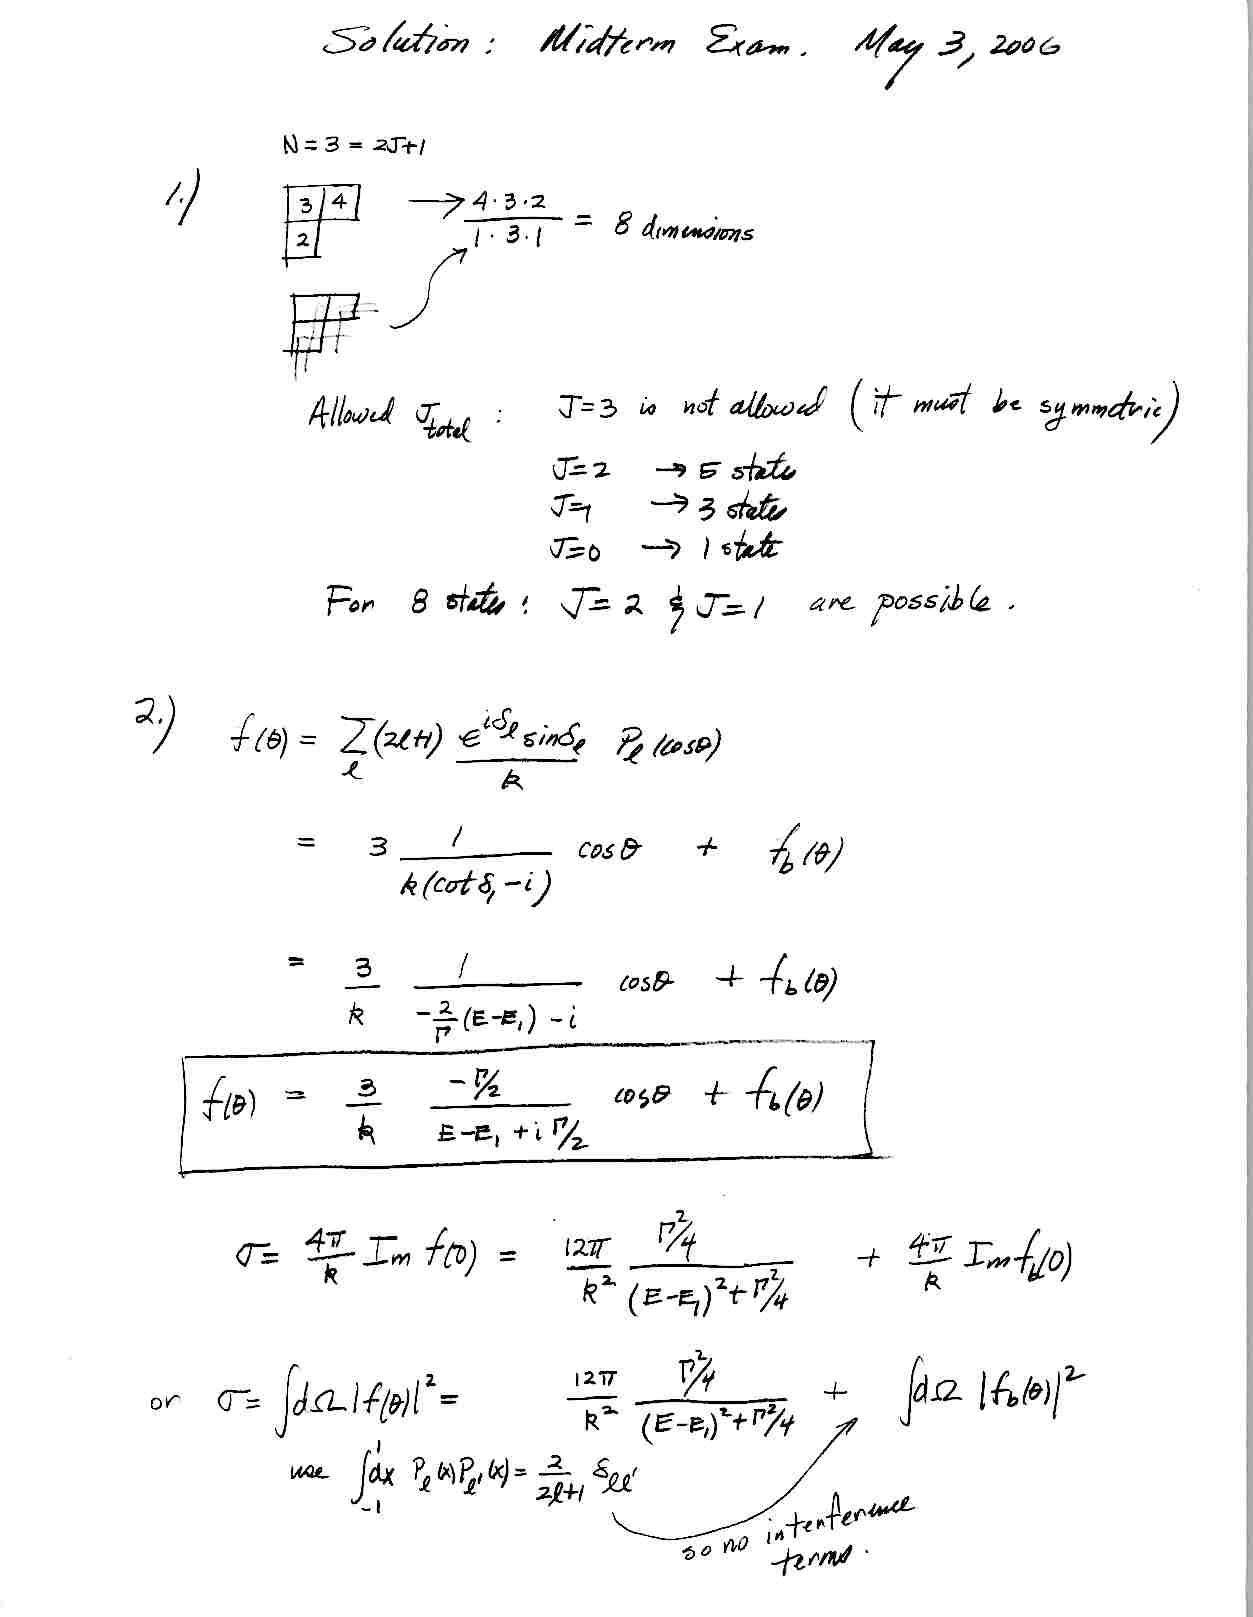 Solution: Midterm Exam. May 3, 2006
N = 3 = 2J+1
1.) 3 4 → 4·3·2 / 1·3·1 = 8 dimensions
2
Allowed J_total : J=3 is not allowed (it must be symmetric)
J=2 → 5 states
J=1 → 3 states
J=0 → 1 state
For 8 states: J=2 & J=1 are possible.
2.) f(θ) = Σ_ℓ (2ℓ+1) e^{iδ_ℓ} sinδ_ℓ / k P_ℓ(cosθ)
= 3 1 / k(cotδ_1 - i) cosθ + f_b(θ)
= 3/k 1 / (-2/Γ (E-E_1) - i) cosθ + f_b(θ)
f(θ) = 3/k (-Γ/2) / (E-E_1 + iΓ/2) cosθ + f_b(θ)
σ = 4π/k Im f(0) = 12π/k² (Γ²/4) / ((E-E_1)² + Γ²/4) + 4π/k Im f_b(0)
or σ = ∫dΩ |f(θ)|² = 12π/k² (Γ²/4) / ((E-E_1)² + Γ²/4) + ∫dΩ |f_b(θ)|²
use ∫_{-1}^{1} dx P_ℓ(x) P_ℓ'(x) = 2/(2ℓ+1) δ_ℓℓ'
so no interference
terms.